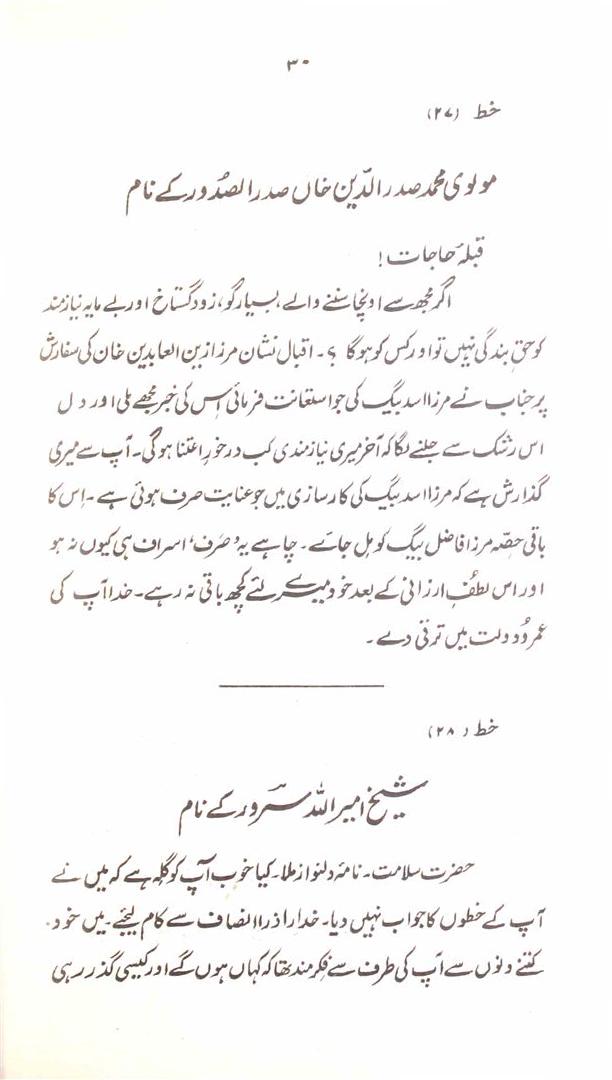 ۳۰
خط (۲۷)
مولوی محمد صدر الدّین خاں صدر الصدُور کے نام
قبلۂ حاجات!
اگر مجھ سے اونچا سننے والے، بسیار گو، زود گستاخ اور بے مایہ نیازمند
کو حقِ بندگی نہیں تو اور کس کو ہوگا ؟۔ اقبال نشان مرزا زین العابدین خان کی سفارش
پر جناب نے مرزا اسد بیگ کی جو استعانت فرمائی اِس کی خبر مجھے ملی اور دل
اس رشک سے جلنے لگا کہ آخر میری نیازمندی کب درخورِ اعتنا ہوگی۔ آپ سے میری
گذارش ہے کہ مرزا اسد بیگ کی کارسازی میں جو عنایت صرف ہوئی ہے۔ اِس کا
باقی حصّہ مرزا فاضل بیگ کو مِل جائے۔ چاہے یہ 'صَرف' اسراف ہی کیوں نہ ہو
اور اس لطُفِ ارزانی کے بعد خود میرے لئے کچھ باقی نہ رہے۔ خدا آپ کی
عمر و دولت میں ترقی دے۔
خط (۲۸)
شیخ امیر اللہ سرور کے نام
حضرت سلامت۔ نامۂ دلنواز ملا۔ کیا خوب آپ کو گلہ ہے کہ میں نے
آپ کے خطوں کا جواب نہیں دیا۔ خدارا ذرا انصاف سے کام لیجئے۔ میں خود
کتنے دنوں سے آپ کی طرف سے فکرمند تھا کہ کہاں ہوں گے اور کیسی گذر رہی